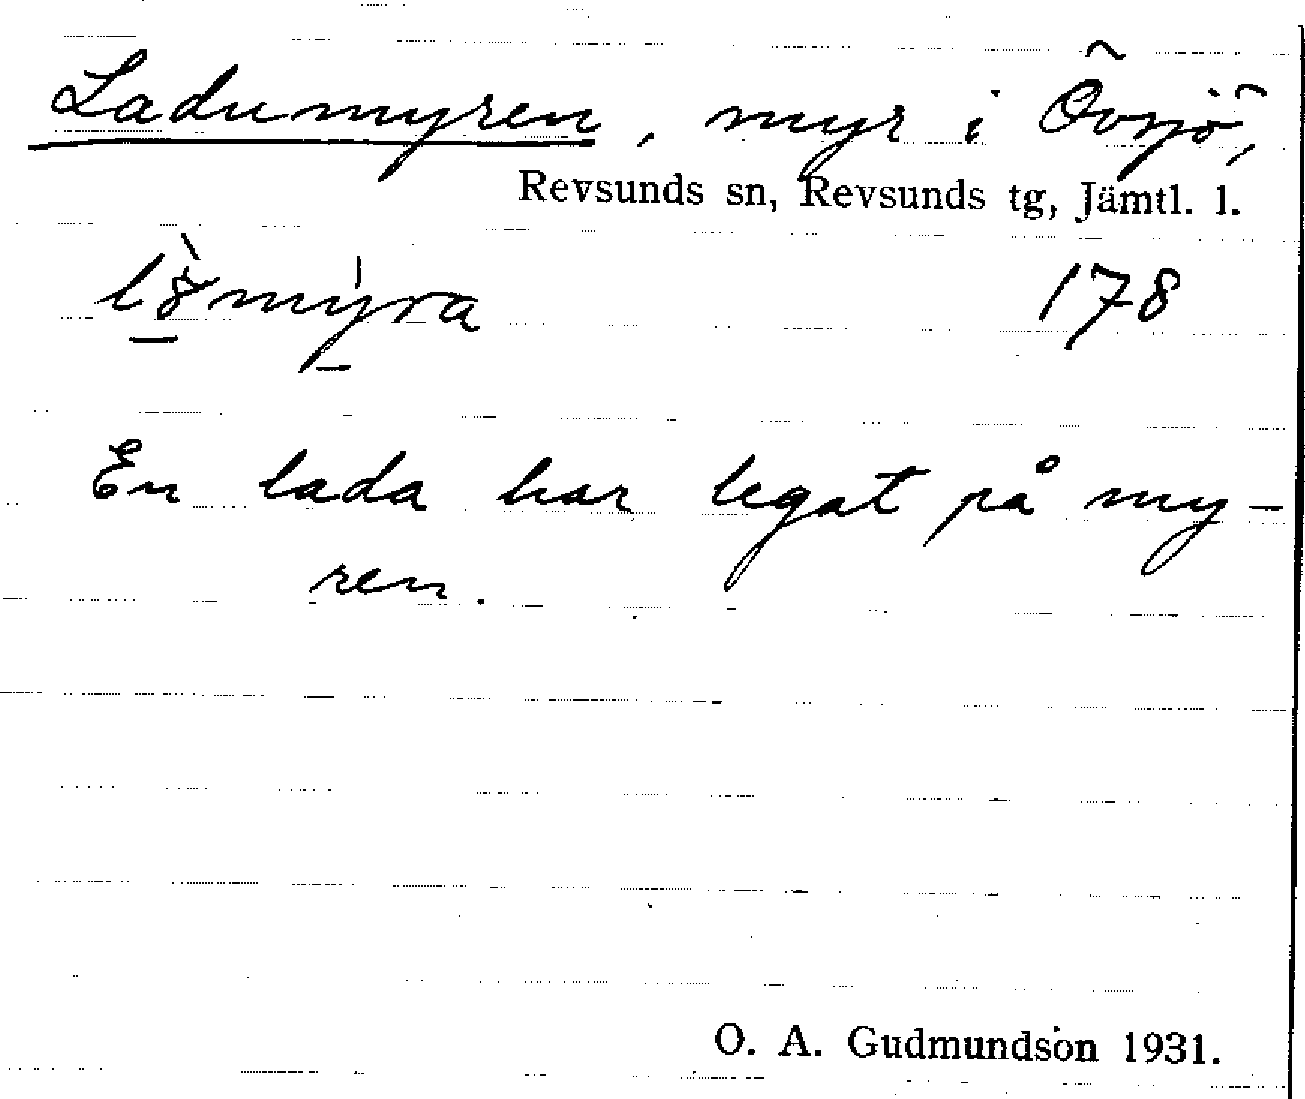 Ladumyren, myr i Övsjö,
Revsunds sn, Revsunds tg, Jämtl. l.
178
En lada har legat på my-
ren.
O. A. Gudmundson 1931.